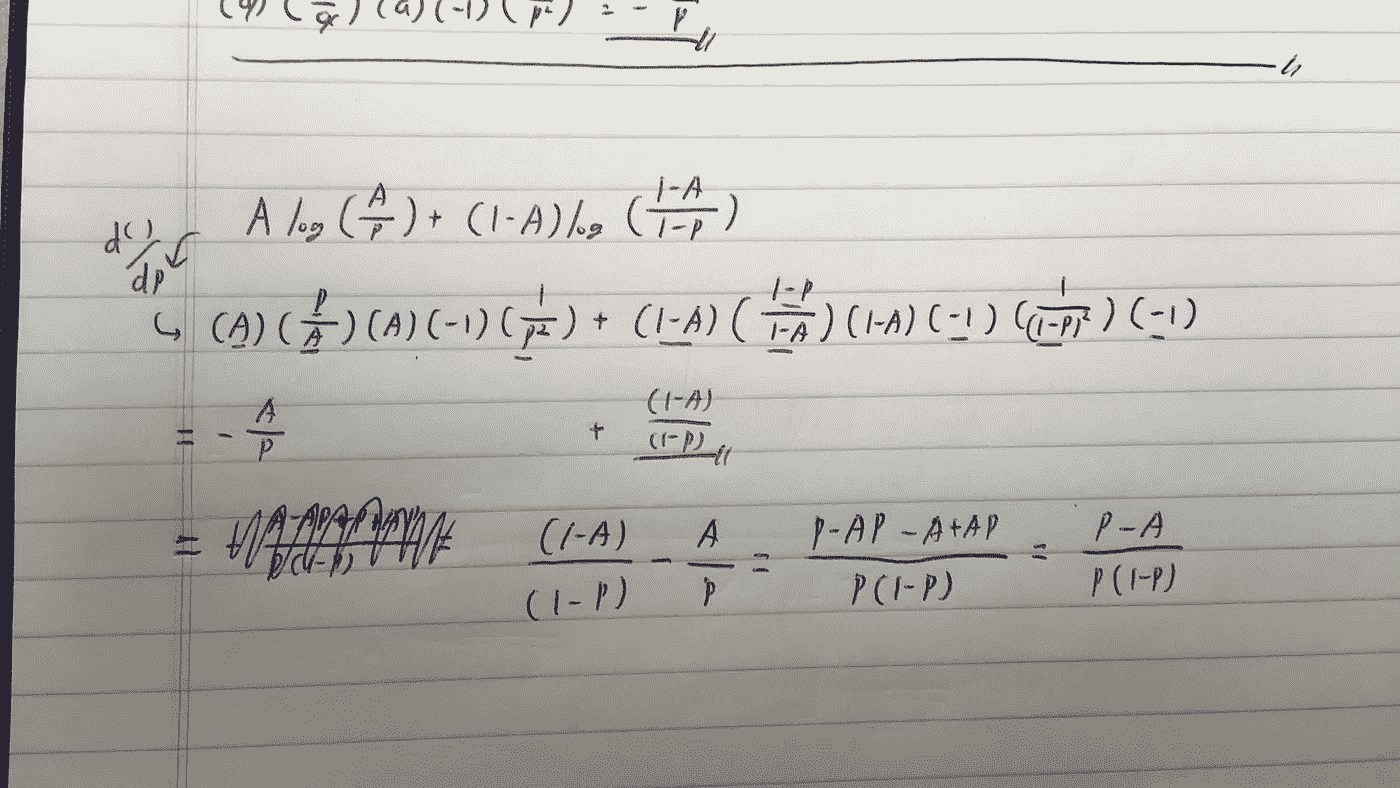 (a) (a) (-1) = -
A log (A/P) + (1-A) log (1-A/1-P)
d()/dp
(A) (P/A) (A) (-1) (1/P²) + (1-A) (1-P/1-A) (1-A) (-1) (1/(1-P)²) (-1)
= - A/P + (1-A)/(1-P)
= (1-A)/(1-P) - A/P = P-AP-A+AP/P(1-P) = P-A/P(1-P)